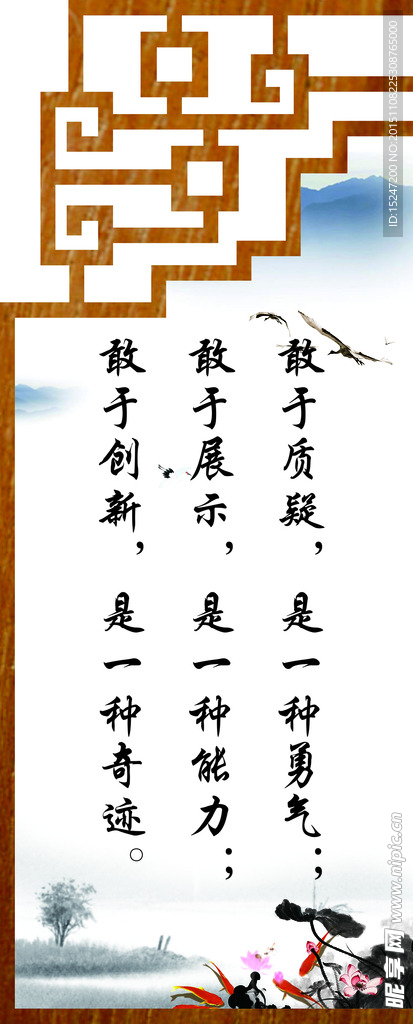 敢于质疑，是一种勇气；
敢于展示，是一种能力；
敢于创新，是一种奇迹。
ID:15247200 NO:20151108225308765000
昵享网 www.nipic.cn